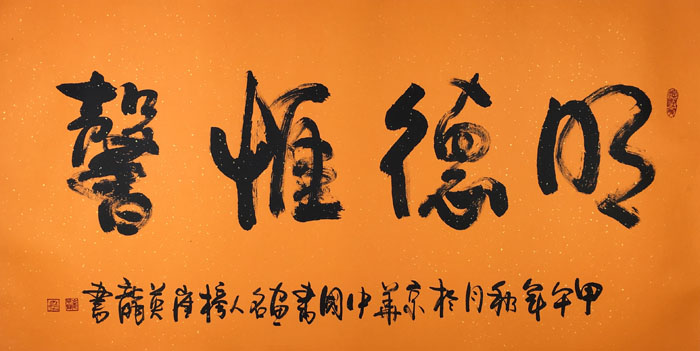 明德惟馨
甲午年秋月於京華中國書畫名人榜崔英龍書